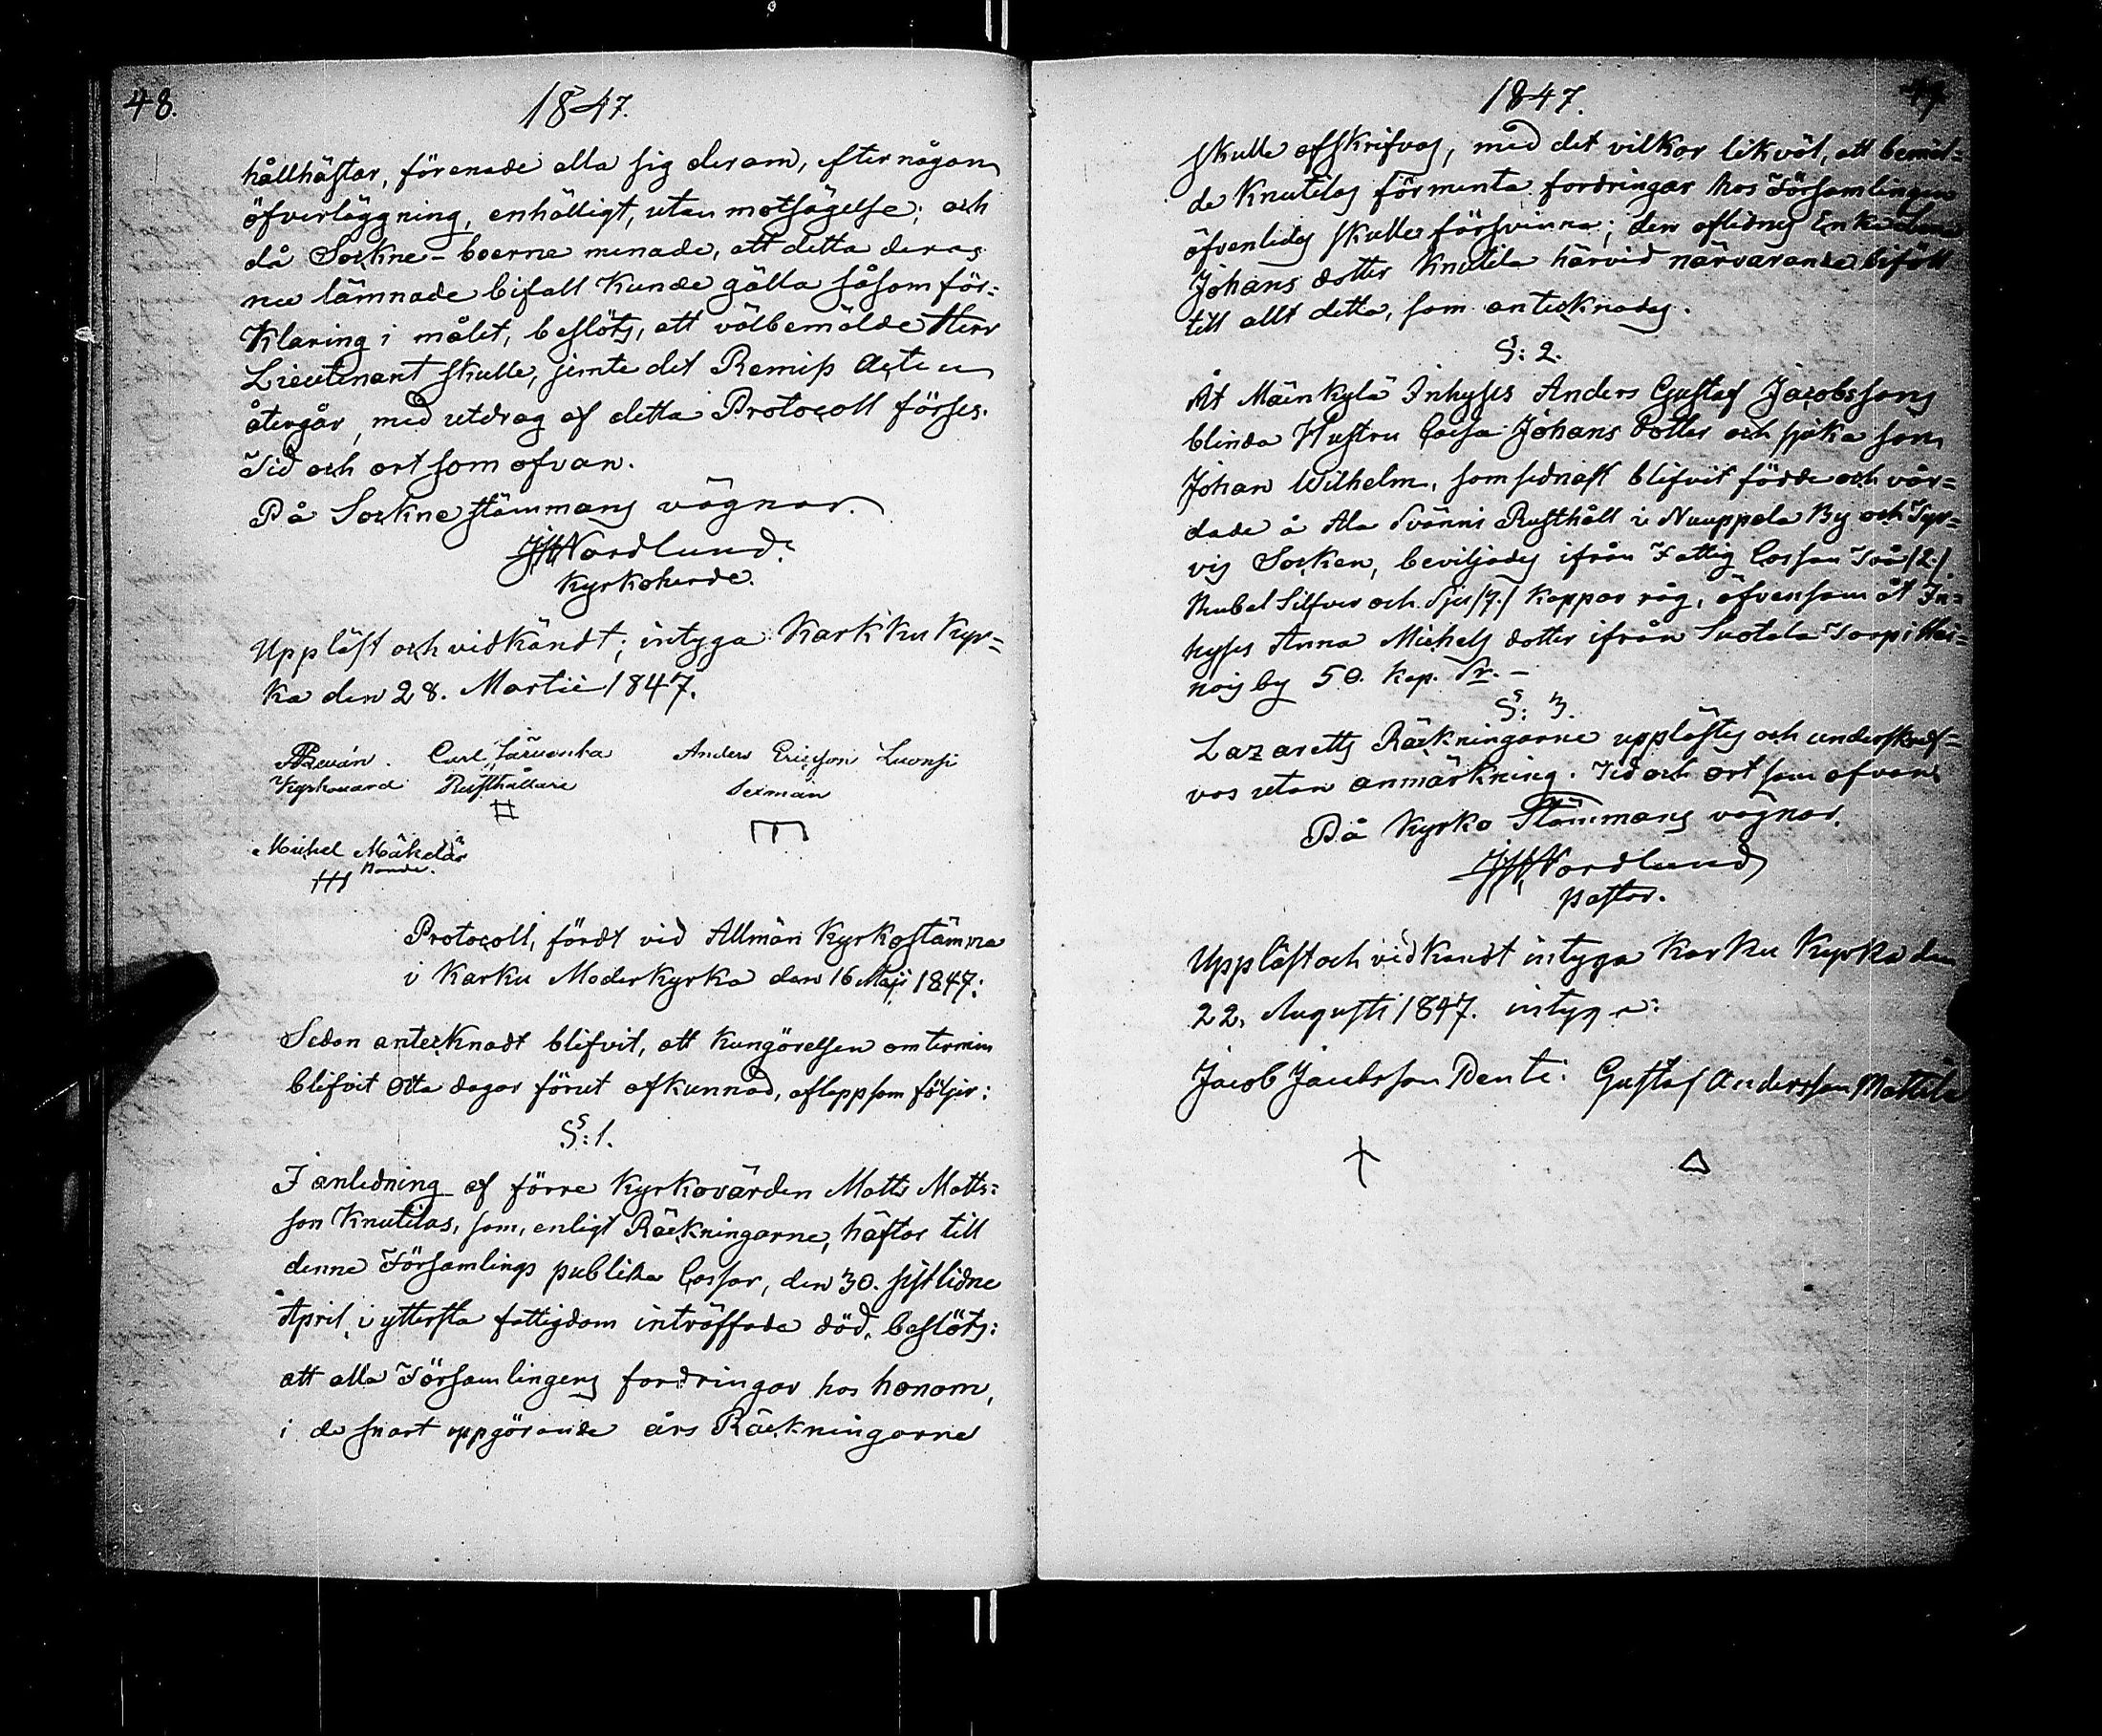 48.
1847.
hållhästar, förenade alla sig derom, efter någon
öfverläggning, enhälligt, utan motsägelse; och
då Sockne-boerne menade, att detta deras
nu lämnade bifall kunde gälla såsom för-
klaring i målet, beslöts, att välbemälde Herr
Lieutenant skulle, jemte det Remiss Acten
återgår, med utdrag af detta Protocoll förses.
Tid och ort som ofvan.
På Sockne stämmans vägnar.
JHNordlund.
Kyrkoherde.
Uppläst och vidkändt; intyga Karkku Kyr-
ka den 28. Martii 1847.
Carl Järventa Anders Ericsson Luonsi
Kyrkovärd Rusthållare Sexman
Michel Mäkelä
Bonde.
Protocoll, fördt vid Allmän Kyrkostämma
i Karku Moderkyrka den 16 Maji 1847:
Sedan antecknadt blifvit, att kungörelsen om termin
blifvit otta dagar förut afkunnad, aflopp som följer:
§: 1.
I anledning af förre Kyrkovärden Matts Matts-
son Knutilas, som, enligt Räckningarne, häftar till
denne Församlings publika Cassor, den 30. sistlidne
April, i yttersta fattigdom inträffade död, beslöts:
att alla Församlingens fordringar hos honom,
i de snart uppgörande års Räckningarne
1847.
skulle afskrifvas, med det vilkor likväl, att bemäl-
de Knutilas förmenta fordringar hos Församlingen
äfvenledes skulle försvinna; den aflidnes Enka
Johans dotter Knutila härvid närvarande biföll
till allt detta, som antecknades.
§: 2.
Åt Mäinkylä Inhyses Anders Gustaf Jacobssons
blinda Hustru Caisa Johans dotter och sjuka son
Johan Wilhelm, som sednast blifvit födde och vår-
dade å Ala Svänni Rusthåll i Nuuppala By och Tyr-
vis Socken, beviljades ifrån Fattig Cassan Två /2./
Rubel Silfver och Sju /7./ kappar råg, äfvensom åt In-
hyses Anna Michels dotter ifrån Suotala Torp i Hei-
nois by 50. kop. Sr. -
§: 3.
Lazaretts Räckningarne upplästes och underskref-
vos utan anmärkning. Tid och ort som ofvan
På Kyrko Stämmans vägnar.
JHNordlund
pastor.
Uppläst och vidkändt intyga Karku Kyrka den
22. Augusti 1847. intyga:
Jacob Jacobsson Penti. Gustaf Andersson Mattila